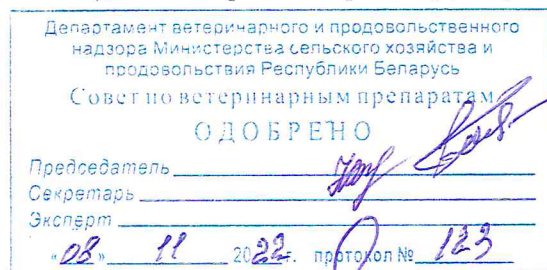 Департамент ветеринарного и продовольственного
надзора Министерства сельского хозяйства и
продовольствия Республики Беларусь
Совет по ветеринарным препаратам
ОДОБРЕНО
Председатель
Секретарь
Эксперт
«08» 11 2022г. протокол № 123